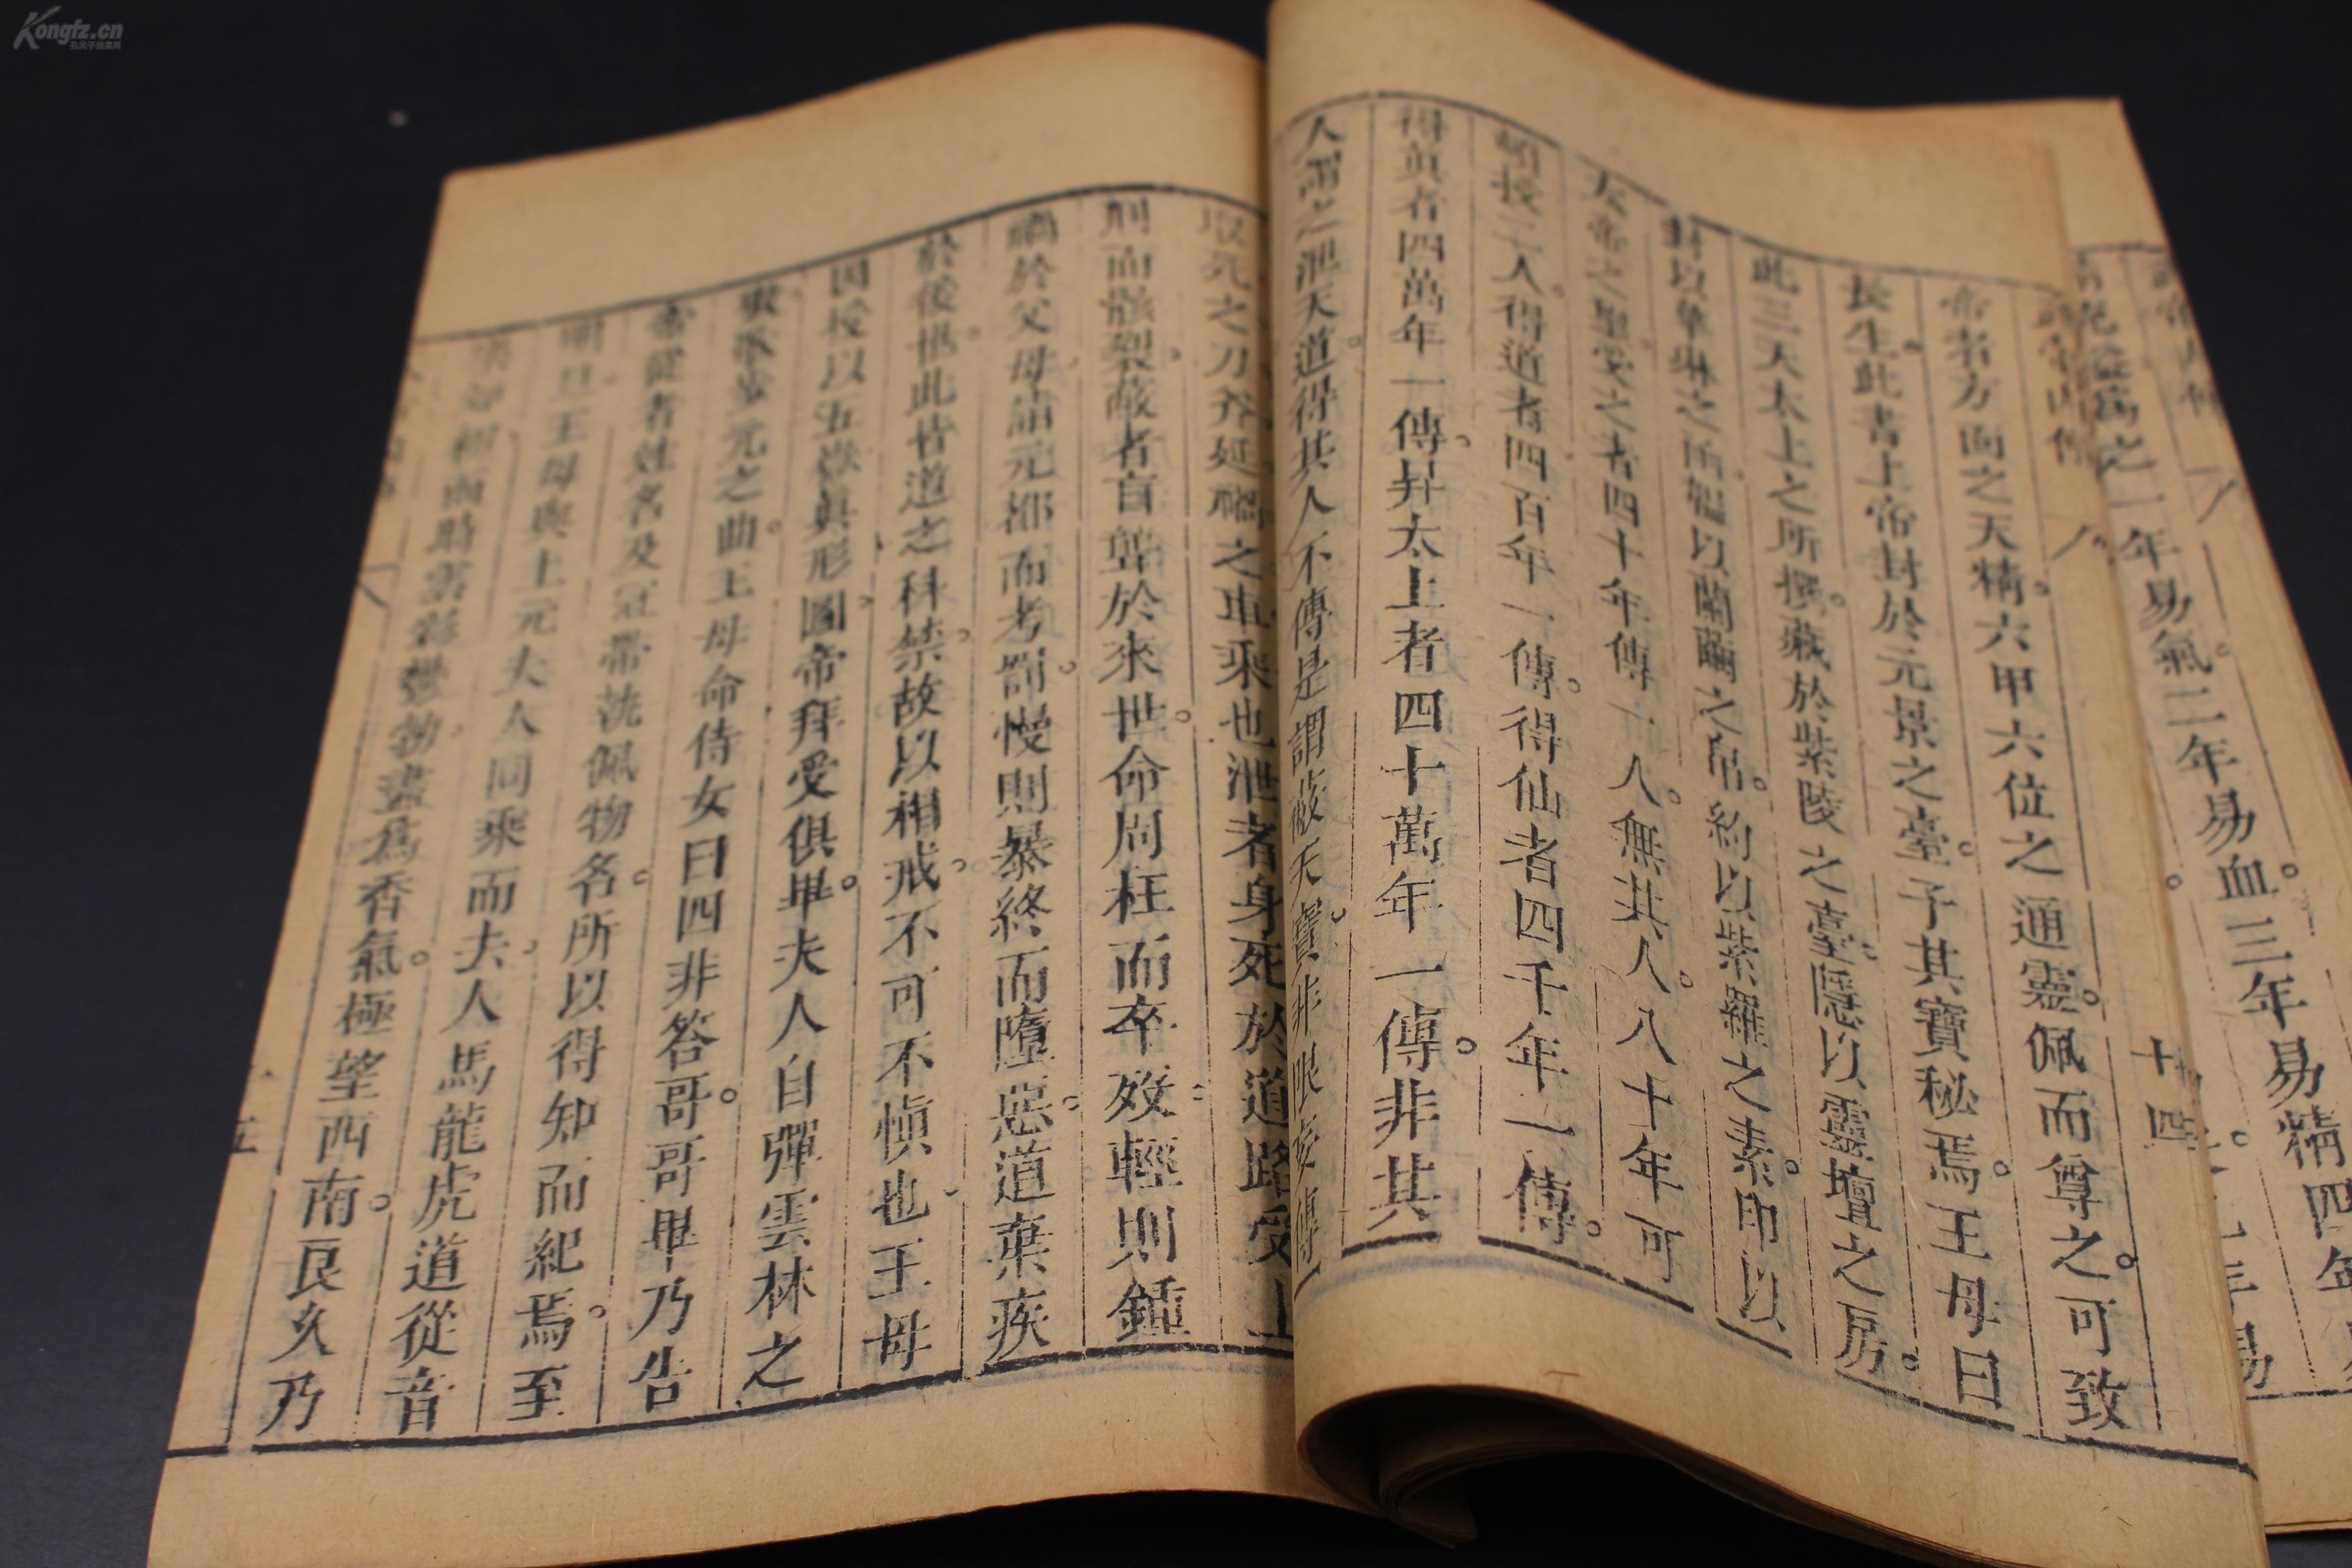 Kongfz.cn
年易氣二年易血三年易精四年
十四
帝者方面之天精六甲六位之通靈佩而尊之可致
長生此書上帝封於元景之臺子其寶秘焉王母曰
此三天太上之所撰藏於紫陵之臺隱以靈壇之房
封以華琳之函韞以蘭繭之帛約以紫羅之素印以
太帝之璽受之者四十年傳一人無其人八十年可
頓授二人得道者四百年一傳得仙者四千年一傳
得眞者四萬年一傳昇太上者四十萬年一傳非其
人謂之泄天道得其人不傳是謂蔽天寶非限妄傳
取死之刀斧延禍之車乘也泄者身死於道路受上
刑而骸裂蔽者盲聾於來世命凋枉而卒歿輕則鍾
禍於父母詣元都而考罰慢則暴終而墮惡道棄疾
於後世此皆道之科禁故以相戒不可不愼也王母
因授以五嶽眞形圖帝拜受俱畢夫人自彈雲林之
璈歌步元之曲王母命侍女曰四非答哥哥畢乃告
帝從者姓名及冠帶洗佩物名所以得知而紀焉至
明旦王母與上元夫人同乘而去人馬龍虎道從音
樂如初而時雲彩鬱勃盡爲香氣極望西南良久乃
五